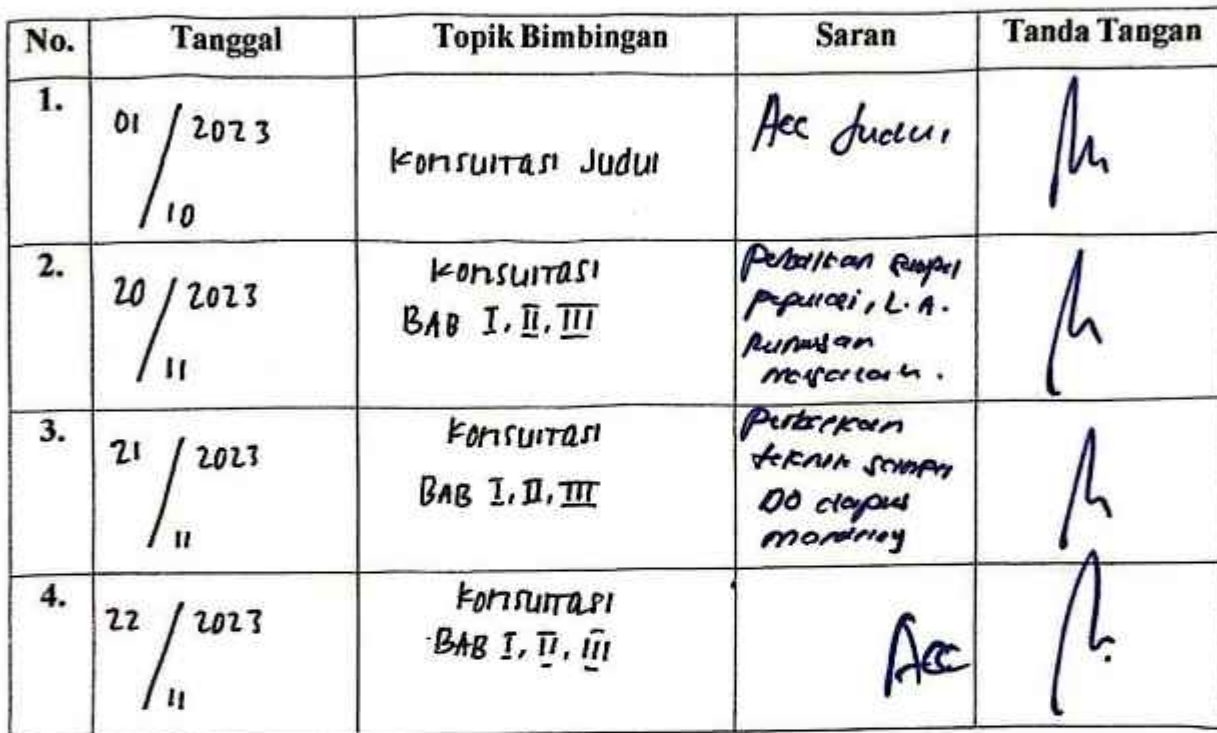 No. Tanggal Topik Bimbingan Saran Tanda Tangan
1. 01 / 2023 / 10 Konsultasi Judul Acc Judul
2. 20 / 2023 / 11 Konsultasi
BAB I, II, III
Perbaikan sampel
populasi, L.A.
Rumusan
masalah.
3. 21 / 2023 / 11 Konsultasi
BAB I, II, III
Perbaikan
teknik sampel
DO dapus
4. 22 / 2023 / 11 Konsultasi
BAB I, II, III
Acc